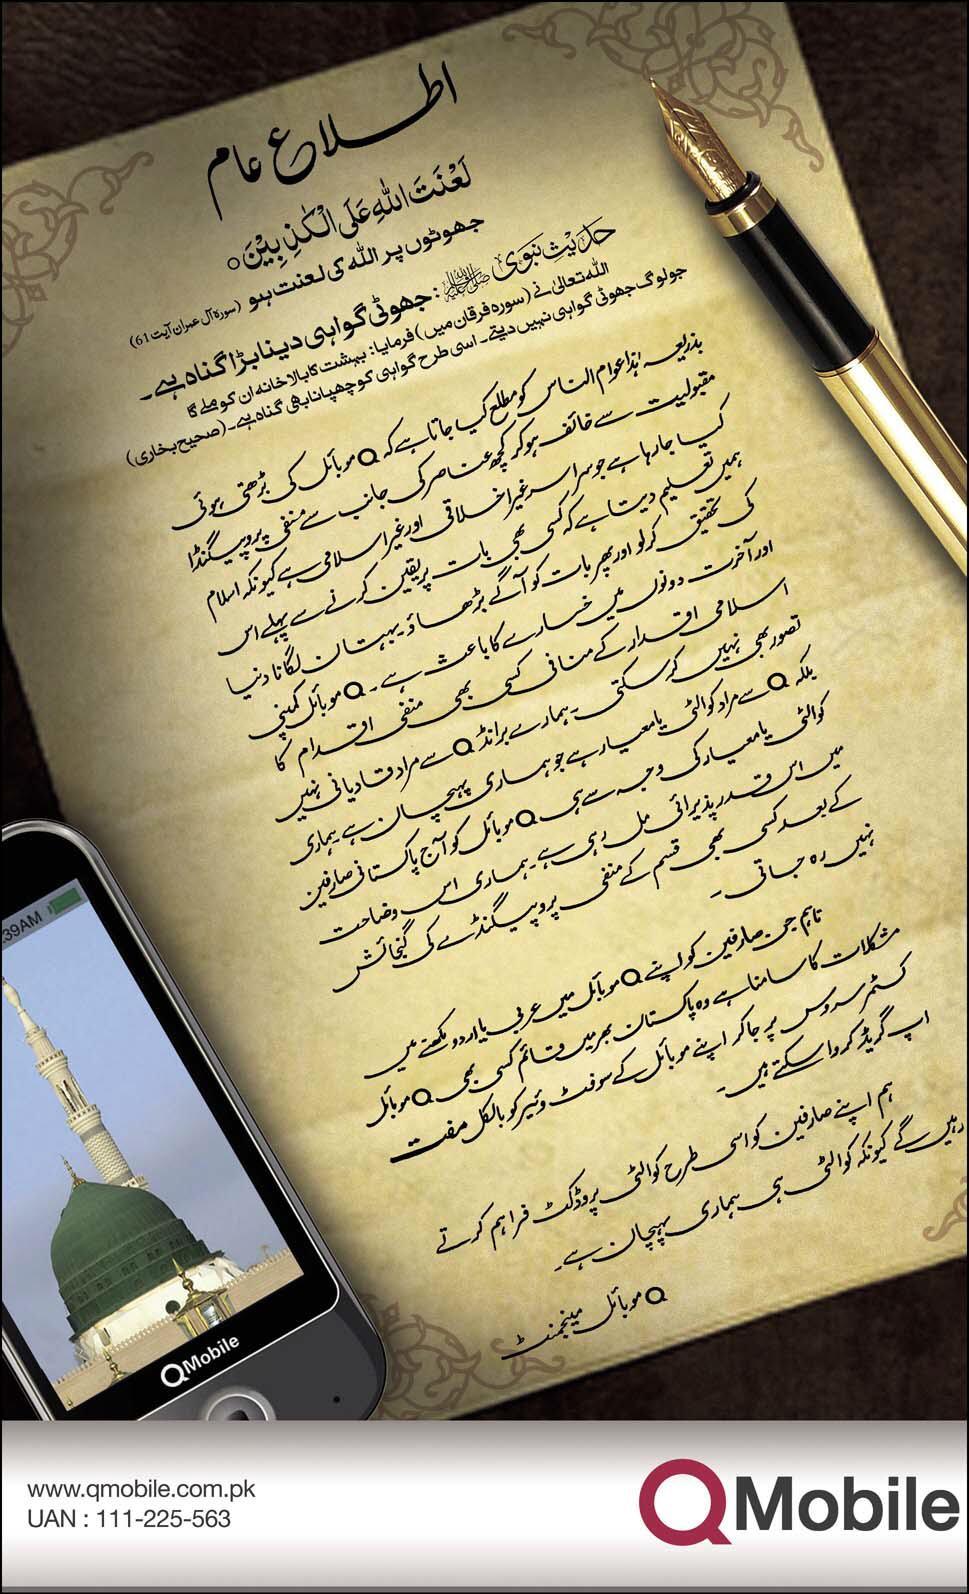 اطلاع عام
لَعْنَتَ اللهِ عَلَى الْكٰذِبِيْنَ ○
جھوٹوں پر اللہ کی لعنت ہو (سورۃ آل عمران آیت 61)
حدیث نبوی ﷺ: جھوٹی گواہی دینا بڑا گناہ ہے۔
اللہ تعالیٰ نے (سورہ فرقان میں) فرمایا: بہشت کا بالاخانہ ان کو ملے گا
جو لوگ جھوٹی گواہی نہیں دیتے۔ اسی طرح گواہی کو چھپانا بھی گناہ ہے۔ (صحیح بخاری)
بذریعہ ہٰذا عوام الناس کو مطلع کیا جاتا ہے کہ Q موبائل کی بڑھتی ہوئی
مقبولیت سے خائف ہو کر کچھ عناصر کی جانب سے منفی پروپیگنڈا
کیا جا رہا ہے جو سراسر غیر اخلاقی اور غیر اسلامی ہے کیونکہ اسلام
ہمیں تعلیم دیتا ہے کہ کسی بھی بات پر یقین کرنے سے پہلے اس
کی تحقیق کر لو اور پھر بات کو آگے بڑھاؤ۔ بہتان لگانا دنیا
اور آخرت دونوں میں خسارے کا باعث ہے۔ Q موبائل کمپنی
اسلامی اقدار کے منافی کسی بھی منفی اقدام کا
تصور بھی نہیں کر سکتی۔ ہمارے برانڈ Q سے مراد قادیانی نہیں
بلکہ Q سے مراد کوالٹی یا معیار ہے جو ہماری پہچان ہے۔ ہماری
کوالٹی یا معیار کی وجہ سے ہی Q موبائل کو آج پاکستانی صارفین
میں اس قدر پذیرائی مل رہی ہے۔ ہماری اس وضاحت
کے بعد کسی بھی قسم کے منفی پروپیگنڈے کی گنجائش
نہیں رہ جاتی۔
تاہم جن صارفین کو اپنے Q موبائل میں عربی یا اردو لکھنے میں
مشکلات کا سامنا ہے وہ پاکستان بھر میں قائم کسی بھی Q موبائل
کسٹمر سروس پر جا کر اپنے موبائل کے سوفٹ وئیر کو بالکل مفت
اپ گریڈ کروا سکتے ہیں۔
ہم اپنے صارفین کو اسی طرح کوالٹی پروڈکٹ فراہم کرتے
رہیں گے کیونکہ کوالٹی ہی ہماری پہچان ہے۔
Q موبائل مینجمنٹ
:39AM
QMobile
www.qmobile.com.pk
UAN : 111-225-563
QMobile